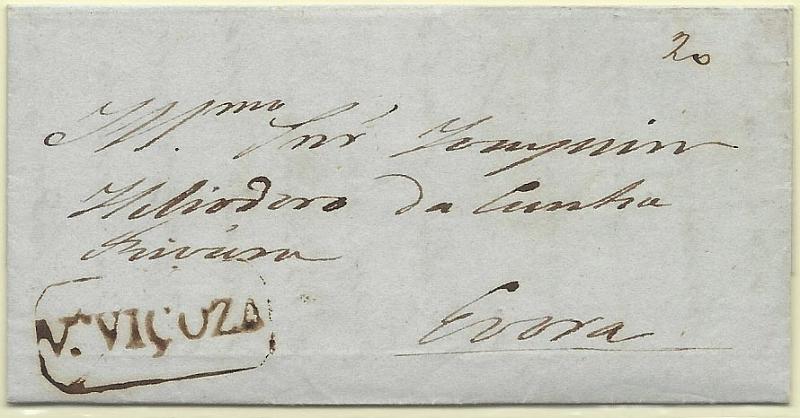 20
Illmo. Snr Joaquim
Heliodoro da Cunha
Rivára
Evora
Vª. VIÇOZA